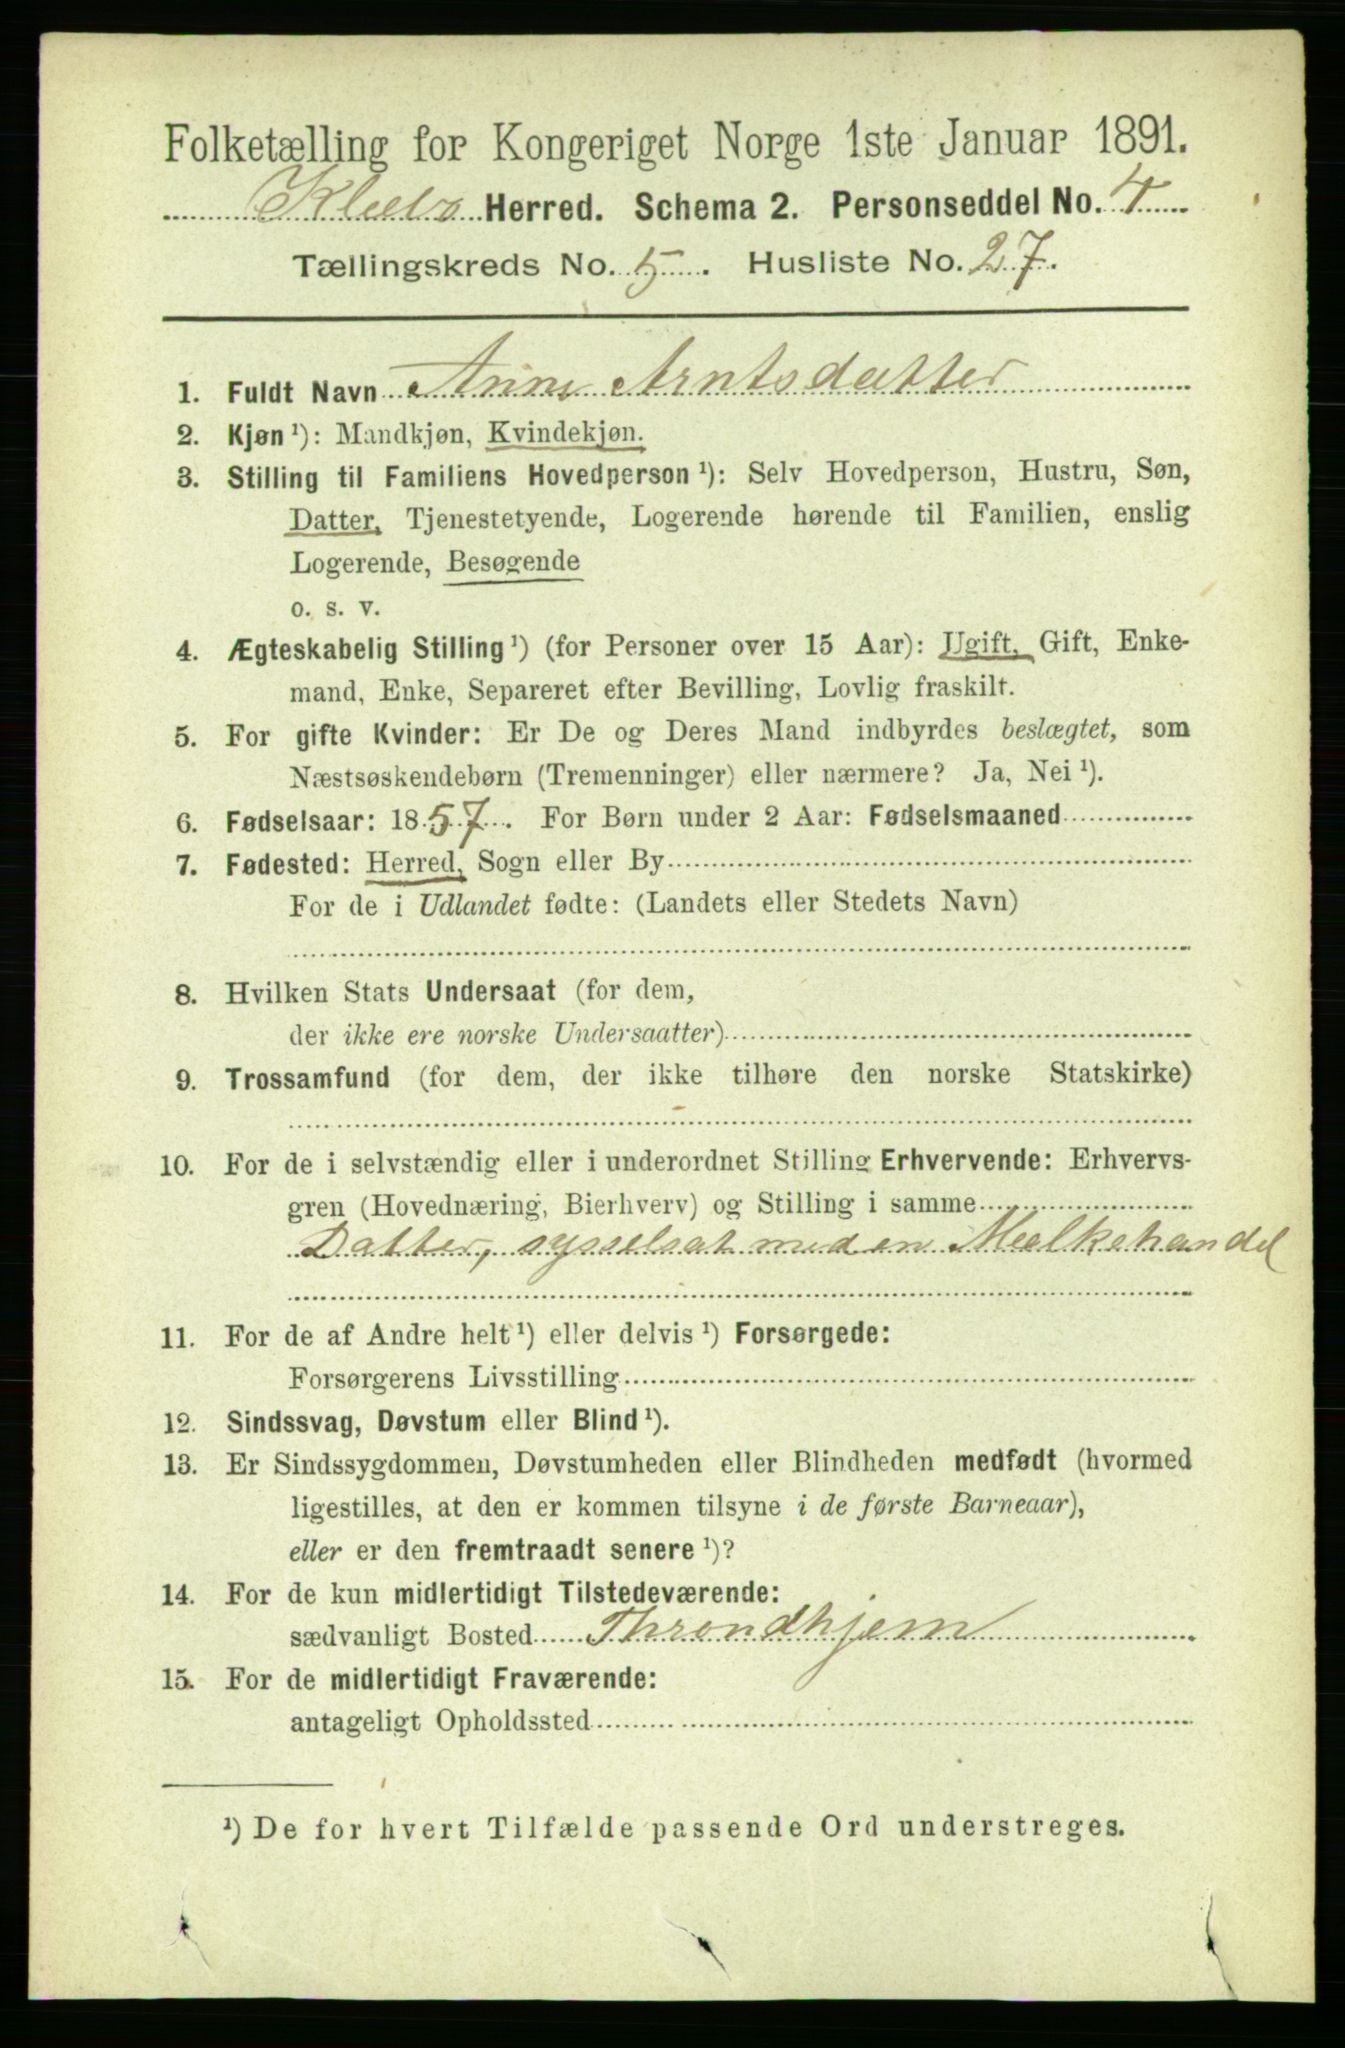 Folketælling for Kongeriget Norge 1ste Januar 1891.
Klæbo Herred. Schema 2. Personseddel No. 4
Tællingskreds No. 5. Husliste No. 27.
1. Fuldt Navn Anne Arntsdatter
2. Kjøn ¹): Mandkjøn, Kvindekjøn.
3. Stilling til Familiens Hovedperson ¹): Selv Hovedperson, Hustru, Søn,
Datter, Tjenestetyende, Logerende hørende til Familien, enslig
Logerende, Besøgende
o. s. v.
4. Ægteskabelig Stilling ¹) (for Personer over 15 Aar): Ugift, Gift, Enke-
mand, Enke, Separeret efter Bevilling, Lovlig fraskilt.
5. For gifte Kvinder: Er De og Deres Mand indbyrdes beslægtet, som
Næstsøskendebørn (Tremenninger) eller nærmere? Ja, Nei ¹).
6. Fødselsaar: 1857. For Børn under 2 Aar: Fødselsmaaned
7. Fødested: Herred, Sogn eller By
For de i Udlandet fødte: (Landets eller Stedets Navn)
8. Hvilken Stats Undersaat (for dem,
der ikke ere norske Undersaatter)
9. Trossamfund (for dem, der ikke tilhøre den norske Statskirke)
10. For de i selvstændig eller i underordnet Stilling Erhvervende: Erhvervs-
gren (Hovednæring, Bierhverv) og Stilling i samme
Datter, sysselsat med en Mælkehandel
11. For de af Andre helt ¹) eller delvis ¹) Forsørgede:
Forsørgerens Livsstilling
12. Sindssvag, Døvstum eller Blind ¹).
13. Er Sindssygdommen, Døvstumheden eller Blindheden medfødt (hvormed
ligestilles, at den er kommen tilsyne i de første Barneaar),
eller er den fremtraadt senere ¹)?
14. For de kun midlertidigt Tilstedeværende:
sædvanligt Bosted Throndhjem
15. For de midlertidigt Fraværende:
antageligt Opholdssted
¹) De for hvert Tilfælde passende Ord understreges.